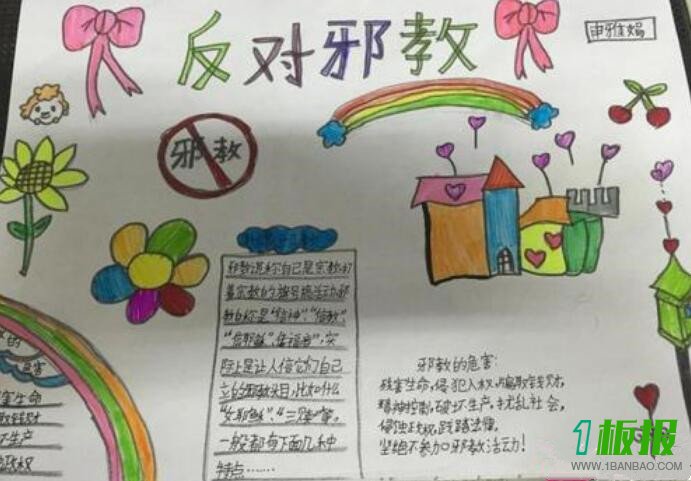 反对邪教
申雅娟
邪教
邪教说称自己是宗教,打
着宗教的旗号搞活动,邪
教自称是“信神”、“信教”
“信耶稣”、“传福音”,实
际上是让人信它们自己
立的邪教头目,比如什么
“女耶稣”、“三赎”等。
一般都有下面几种
特点……
邪教的危害:
残害生命,侵犯人权,骗取钱财,
精神控制,破坏生产,扰乱社会,
侵蚀政权,践踏法律,
坚绝不参加邪教活动!
的
危害
害生命
取钱财
生产
政权
1板报
WWW.1BANBAO.COM